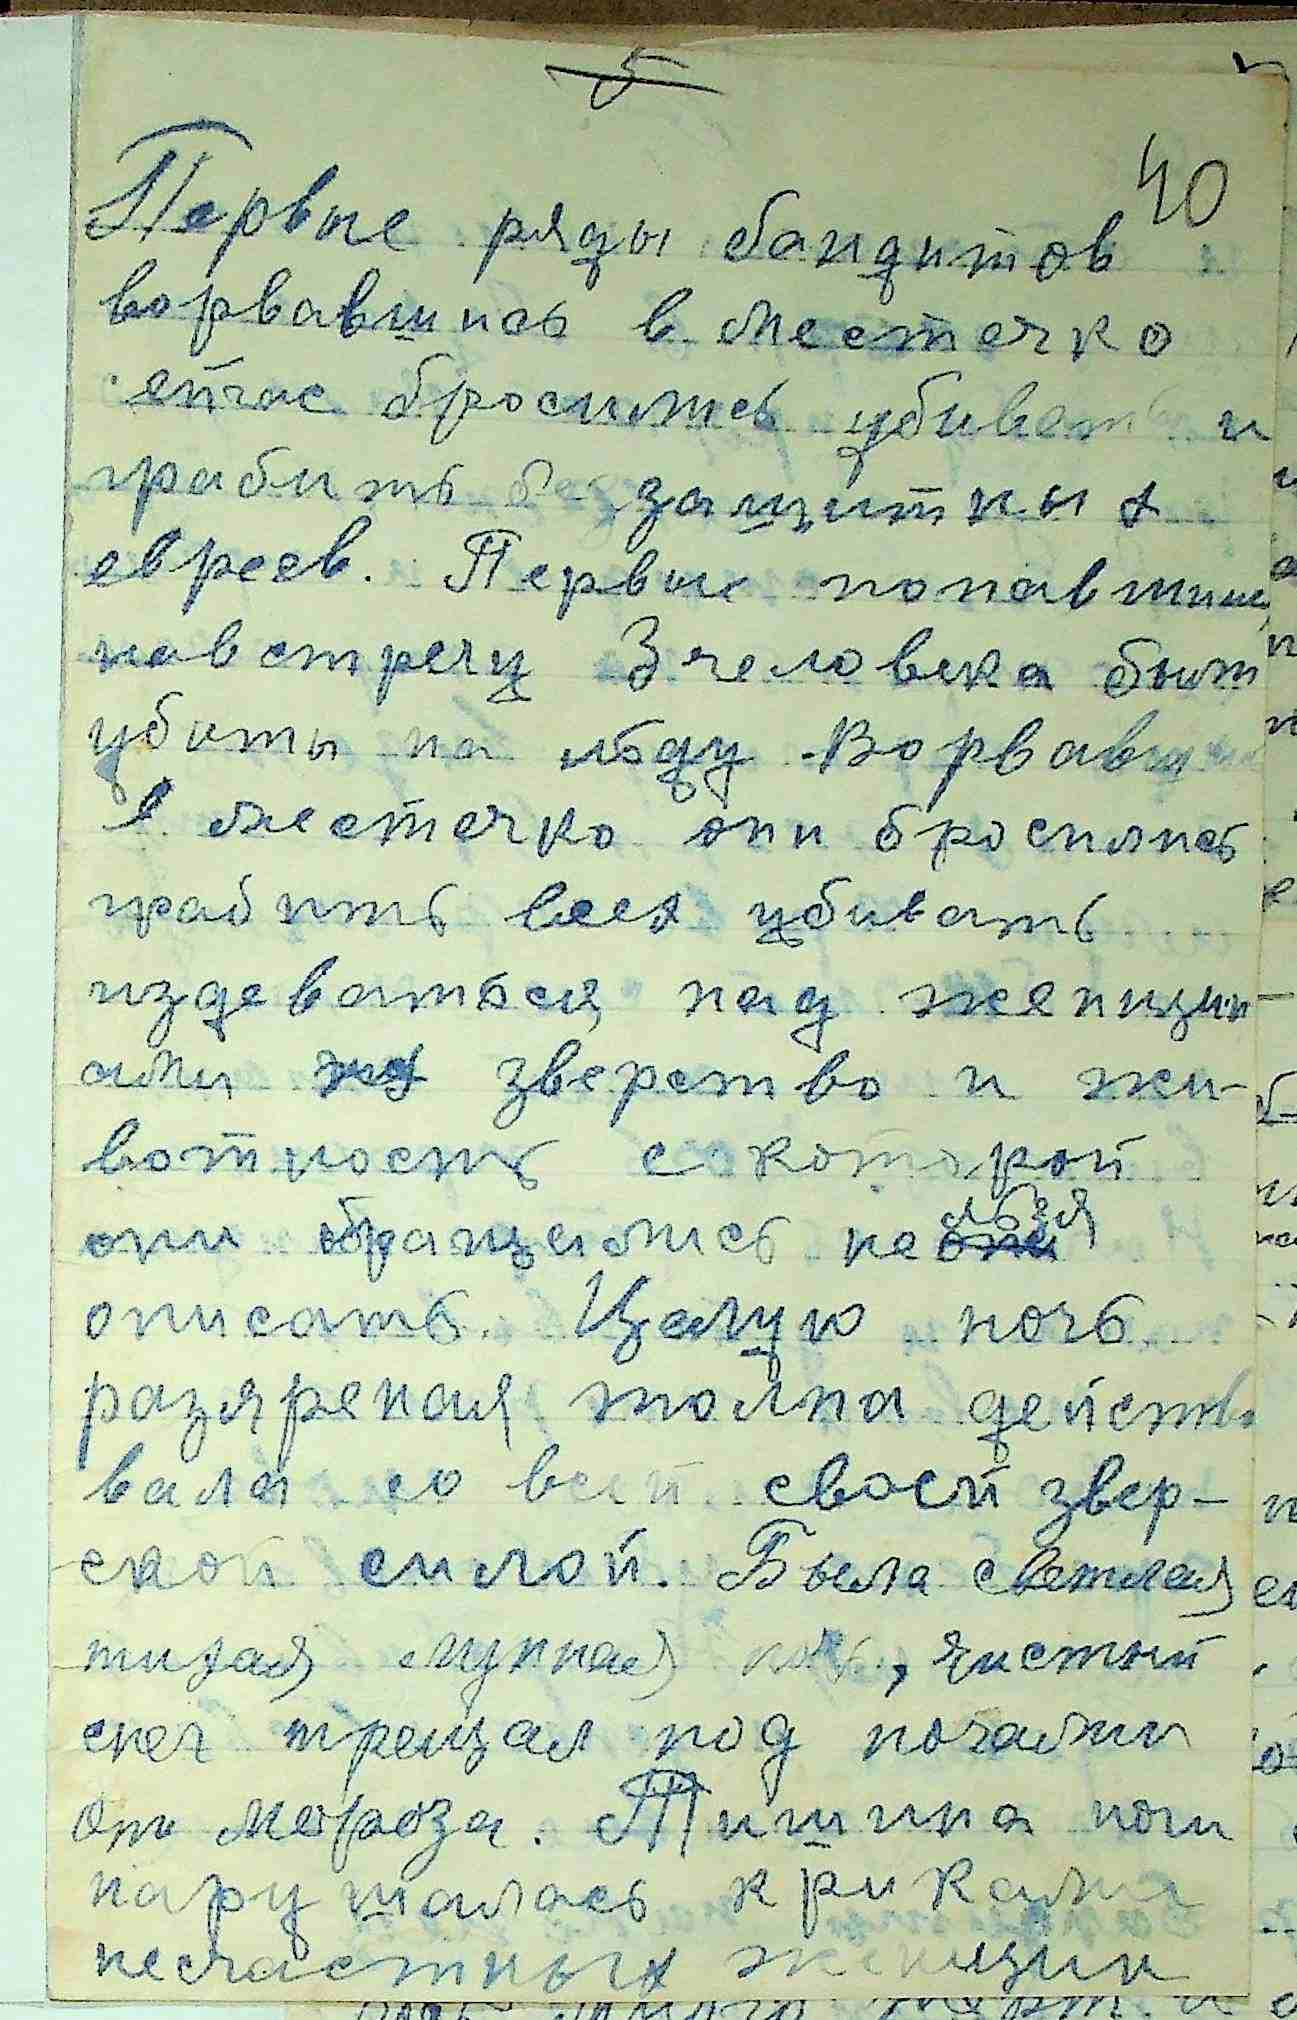 5
40
Первые ряды бандитов
ворвавшись в местечко
сейчас бросились убивать и
грабить беззащитных
евреев. Первые попавшиись
навстречу 3 человека были
убиты на льду. Ворвавш
в местечко они бросились
грабить всех убивать
издеваться над женщин-
ами зверство и жи-
вотность с которой
они обращались не льзя
описать. Целую ночь
разяреная толпа действо
вала со всей своей звер-
ской силой. Была светлая
тихая лунная ночь, чистый
снег трещал под ногами
от мороза. Тишина ночи
нарушалась криками
несчастных женщин